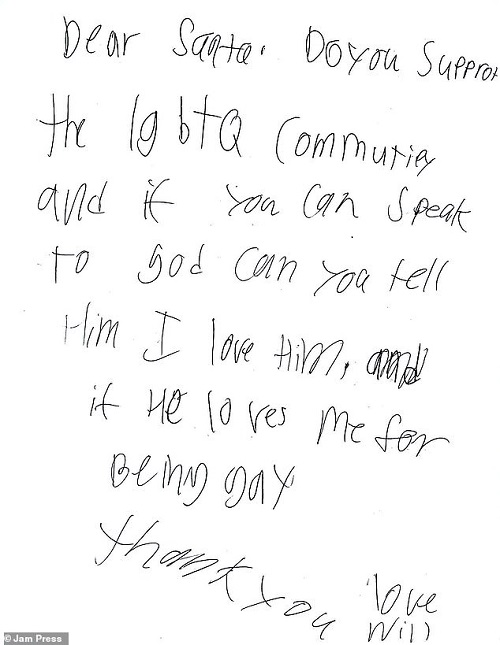 Dear Santa. Do you Supprot
the lgbtQ Commutiey
and if you can Speak
to god can you tell
Him I love Him, and
if He loves me for
Being gay
thank you
love
Will
© Jam Press